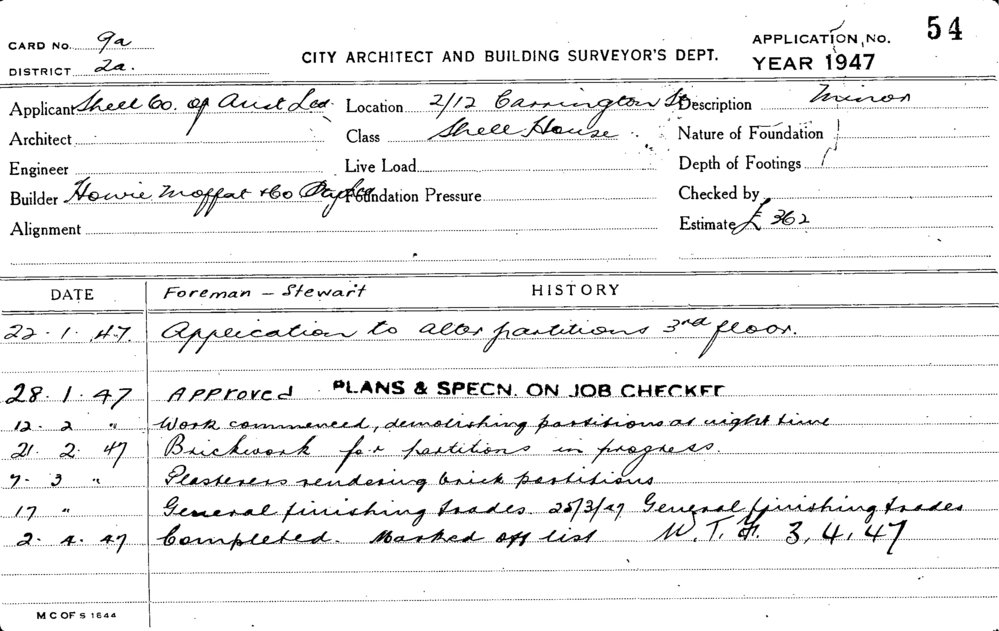 CARD No. 9a
DISTRICT 2a.
CITY ARCHITECT AND BUILDING SURVEYOR'S DEPT.
APPLICATION NO. 54
YEAR 1947
Applicant Shell Co. of Aust Ltd. Location 2/12 Carrington St Description Minor
Architect Class Shell House. Nature of Foundation
Engineer Live Load Depth of Footings
Builder Howie Moffat & Co Pty Ltd Foundation Pressure Checked by
Alignment Estimate £ 362
DATE Foreman - Stewart HISTORY
22.1.47. Application to alter partitions 3rd floor.
28.1.47 Approved PLANS & SPECN. ON JOB CHECKED
12.2 " Work commenced, demolishing partitions at night time
21.2.47 Brickwork for partitions in progress.
7.3 " Plasterers rendering brick partitions
17 " General finishing trades. 25/3/47 General finishing trades
2.4.47 Completed. Marked off list W.T.H. 3.4.47
M C OF S 1644